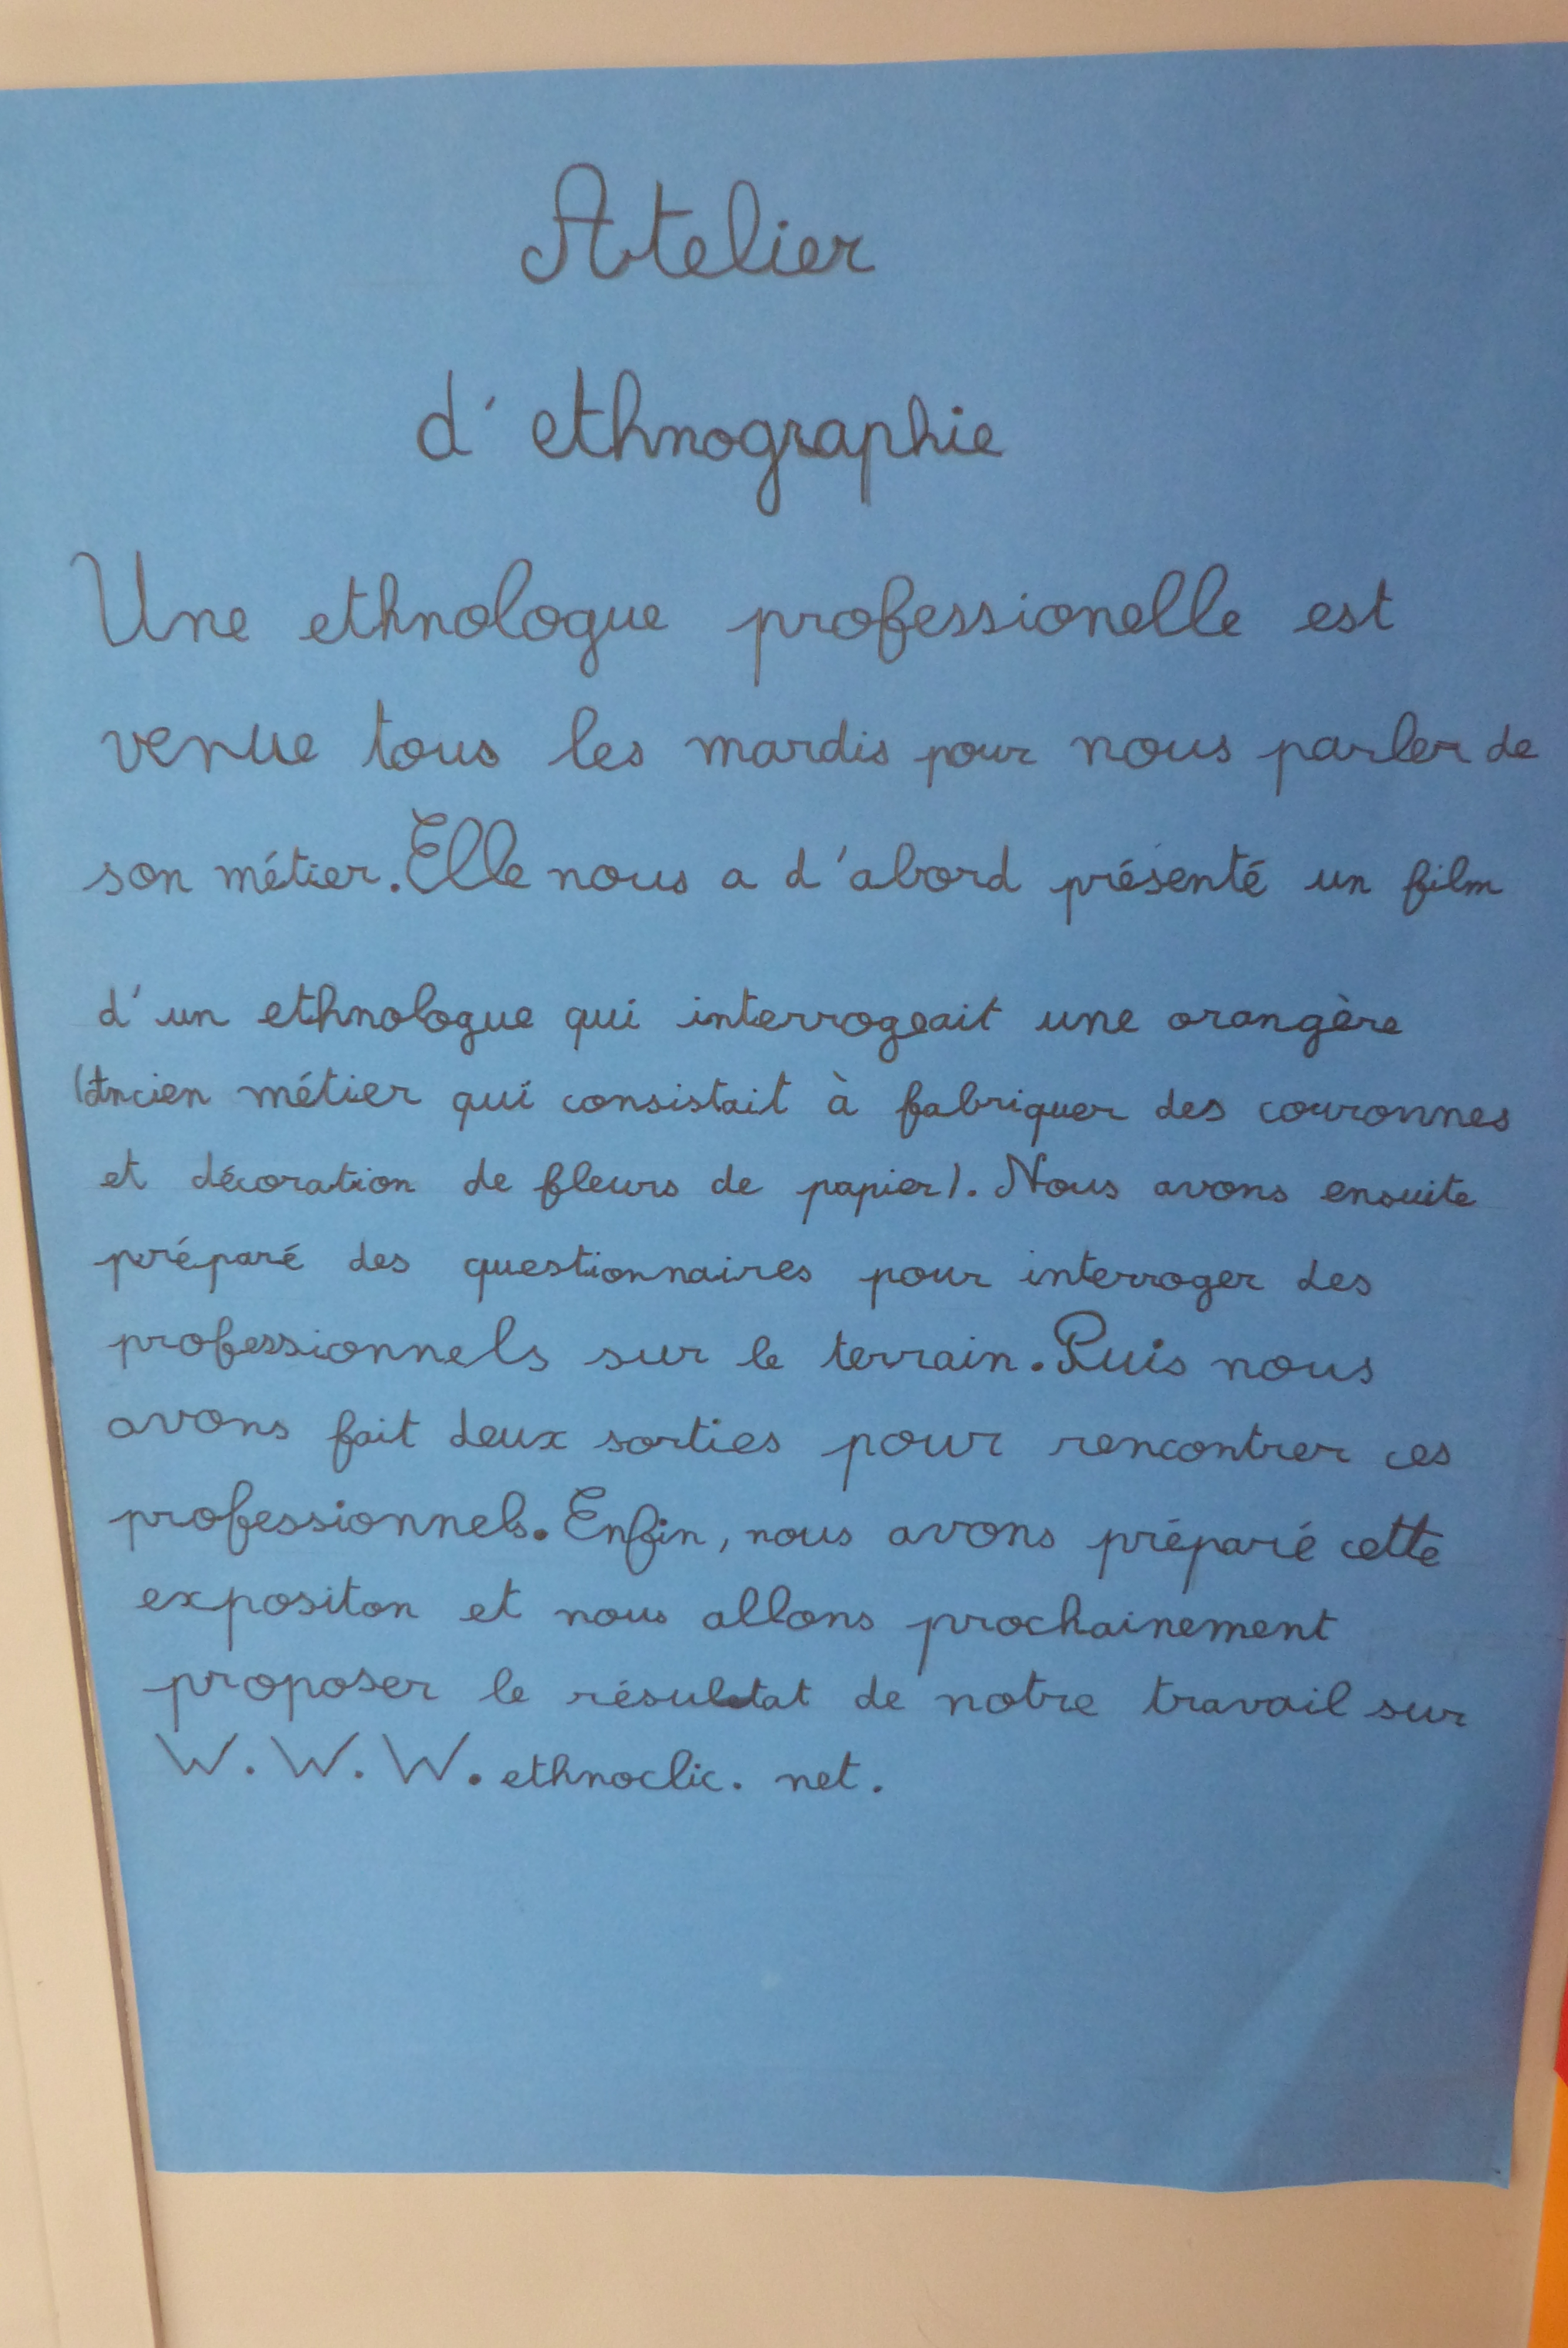 Atelier
d'ethnographie
Une ethnologue professionelle est
venue tous les mardis pour nous parler de
son métier. Elle nous a d'abord présenté un film
d'un ethnologue qui interrogeait une orangère
(Ancien métier qui consistait à fabriquer des couronnes
et décoration de fleurs de papier). Nous avons ensuite
préparé des questionnaires pour interroger des
professionnels sur le terrain. Puis nous
avons fait deux sorties pour rencontrer ces
professionnels. Enfin, nous avons préparé cette
expositon et nous allons prochainement
proposer le résultat de notre travail sur
W.W.W. ethnoclic. net.